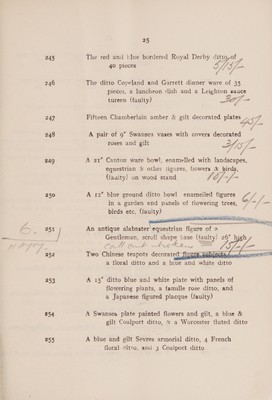 25
245 The red and blue bordered Royal Derby ditto of
40 pieces 5/15/-
246 The ditto Copeland and Garrett dinner ware of 35
pieces, a luncheon dish and a Leighton sauce
tureen (faulty) 30/-
247 Fifteen Chamberlain amber & gilt decorated plates 45/-
248 A pair of 9" Swansea vases with covers decorated
roses and gilt 3/15/-
249 A 21" Canton ware bowl, enamelled with landscapes,
equestrian & other figures, flowers & birds,
(faulty) on wood stand 10/-/-
250 A 12" blue ground ditto bowl enamelled figures 6/-/-
in a garden and panels of flowering trees,
birds etc. (faulty)
251 An antique alabaster equestrian figure of a
Gentleman, scroll shape base (faulty) 26" high
15/-/-
252 Two Chinese teapots decorated figure subjects,
a floral ditto and a blue and white ditto
253 A 13" ditto blue and white plate with panels of
flowering plants, a famille rose ditto, and
a Japanese figured plaque (faulty)
254 A Swansea plate painted flowers and gilt, a blue &
gilt Coalport ditto, & a Worcester fluted ditto
255 A blue and gilt Sevres armorial ditto, 4 French
floral ditto, and 3 Coalport ditto